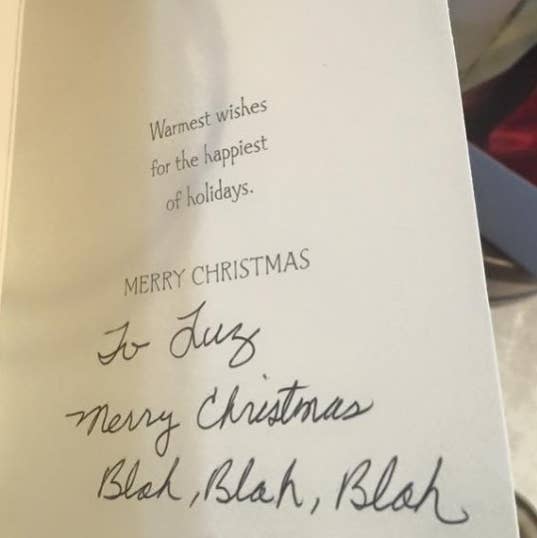 Warmest wishes
for the happiest
of holidays.
MERRY CHRISTMAS
To Luz
Merry Christmas
Blah, Blah, Blah